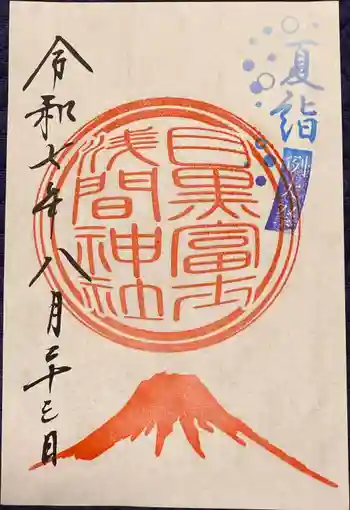 夏詣
例大祭
目黒富士
浅間神社
令和七年八月二十三日